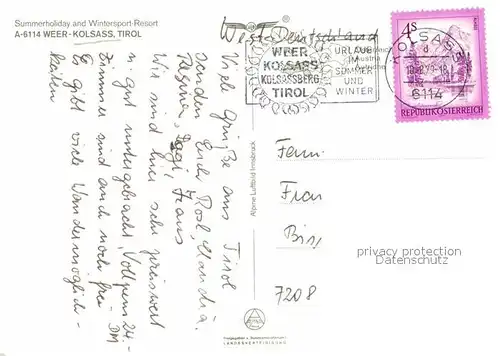 Summerholiday and Wintersport-Resort
A-6114 WEER-KOLSASS, TIROL
Westdeutschland
WEER
KOLSASS
KOLSASSBERG
TIROL
URLAUB
IM
SOMMER
UND
WINTER
4S
KOLSASS
6114
REPUBLIK ÖSTERREICH
Viele Grüße aus Tirol
senden Euch Rosl, Claudia,
Regina, Hans
Wir sind hier sehr preiswert
u. gut untergebracht, Vollpens. 24.- DM
Zimmer sind auch noch frei
Es gibt viele Wandermöglich-
keiten
Alpine Luftbild Innsbruck
Fam.
Frau
7208
privacy protection
Datenschutz
LANDESVERTEIDIGUNG